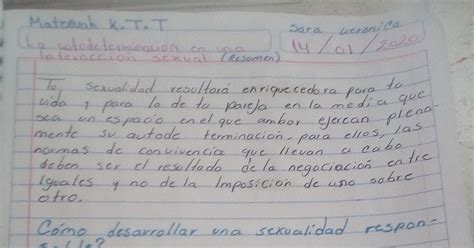 Matosuh K.T.T
Sara veronica
14/01/2020
La autodeterminación en una
Interacción sexual (Resumen)
Tu sexualidad resultará enriquecedora para tu
vida y para la de tu pareja en la media que
sea un espacio en el que ambor ejercan plena-
mente su autode terminación. para ellos, las
normas de convivencia que llevan a cabo
deben ser el resultado de la negociación entre
Iguales y no de la Imposición de uno sobre
otro.
Cómo desarrollar una sexualidad respon-